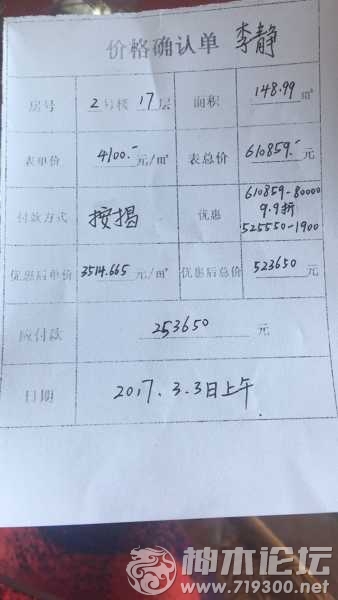 价格确认单 李静
房号 2号楼 17层 面积 148.99 ㎡
表单价 4100.- 元/㎡ 表总价 610859.- 元
付款方式 按揭 优惠 610859-80000
9.9折
525550-1900
优惠后单价 3514.665 元/㎡ 优惠后总价 523650 元
应付款 253650 元
日期 2017.3.3日上午
神木论坛
www.719300.net